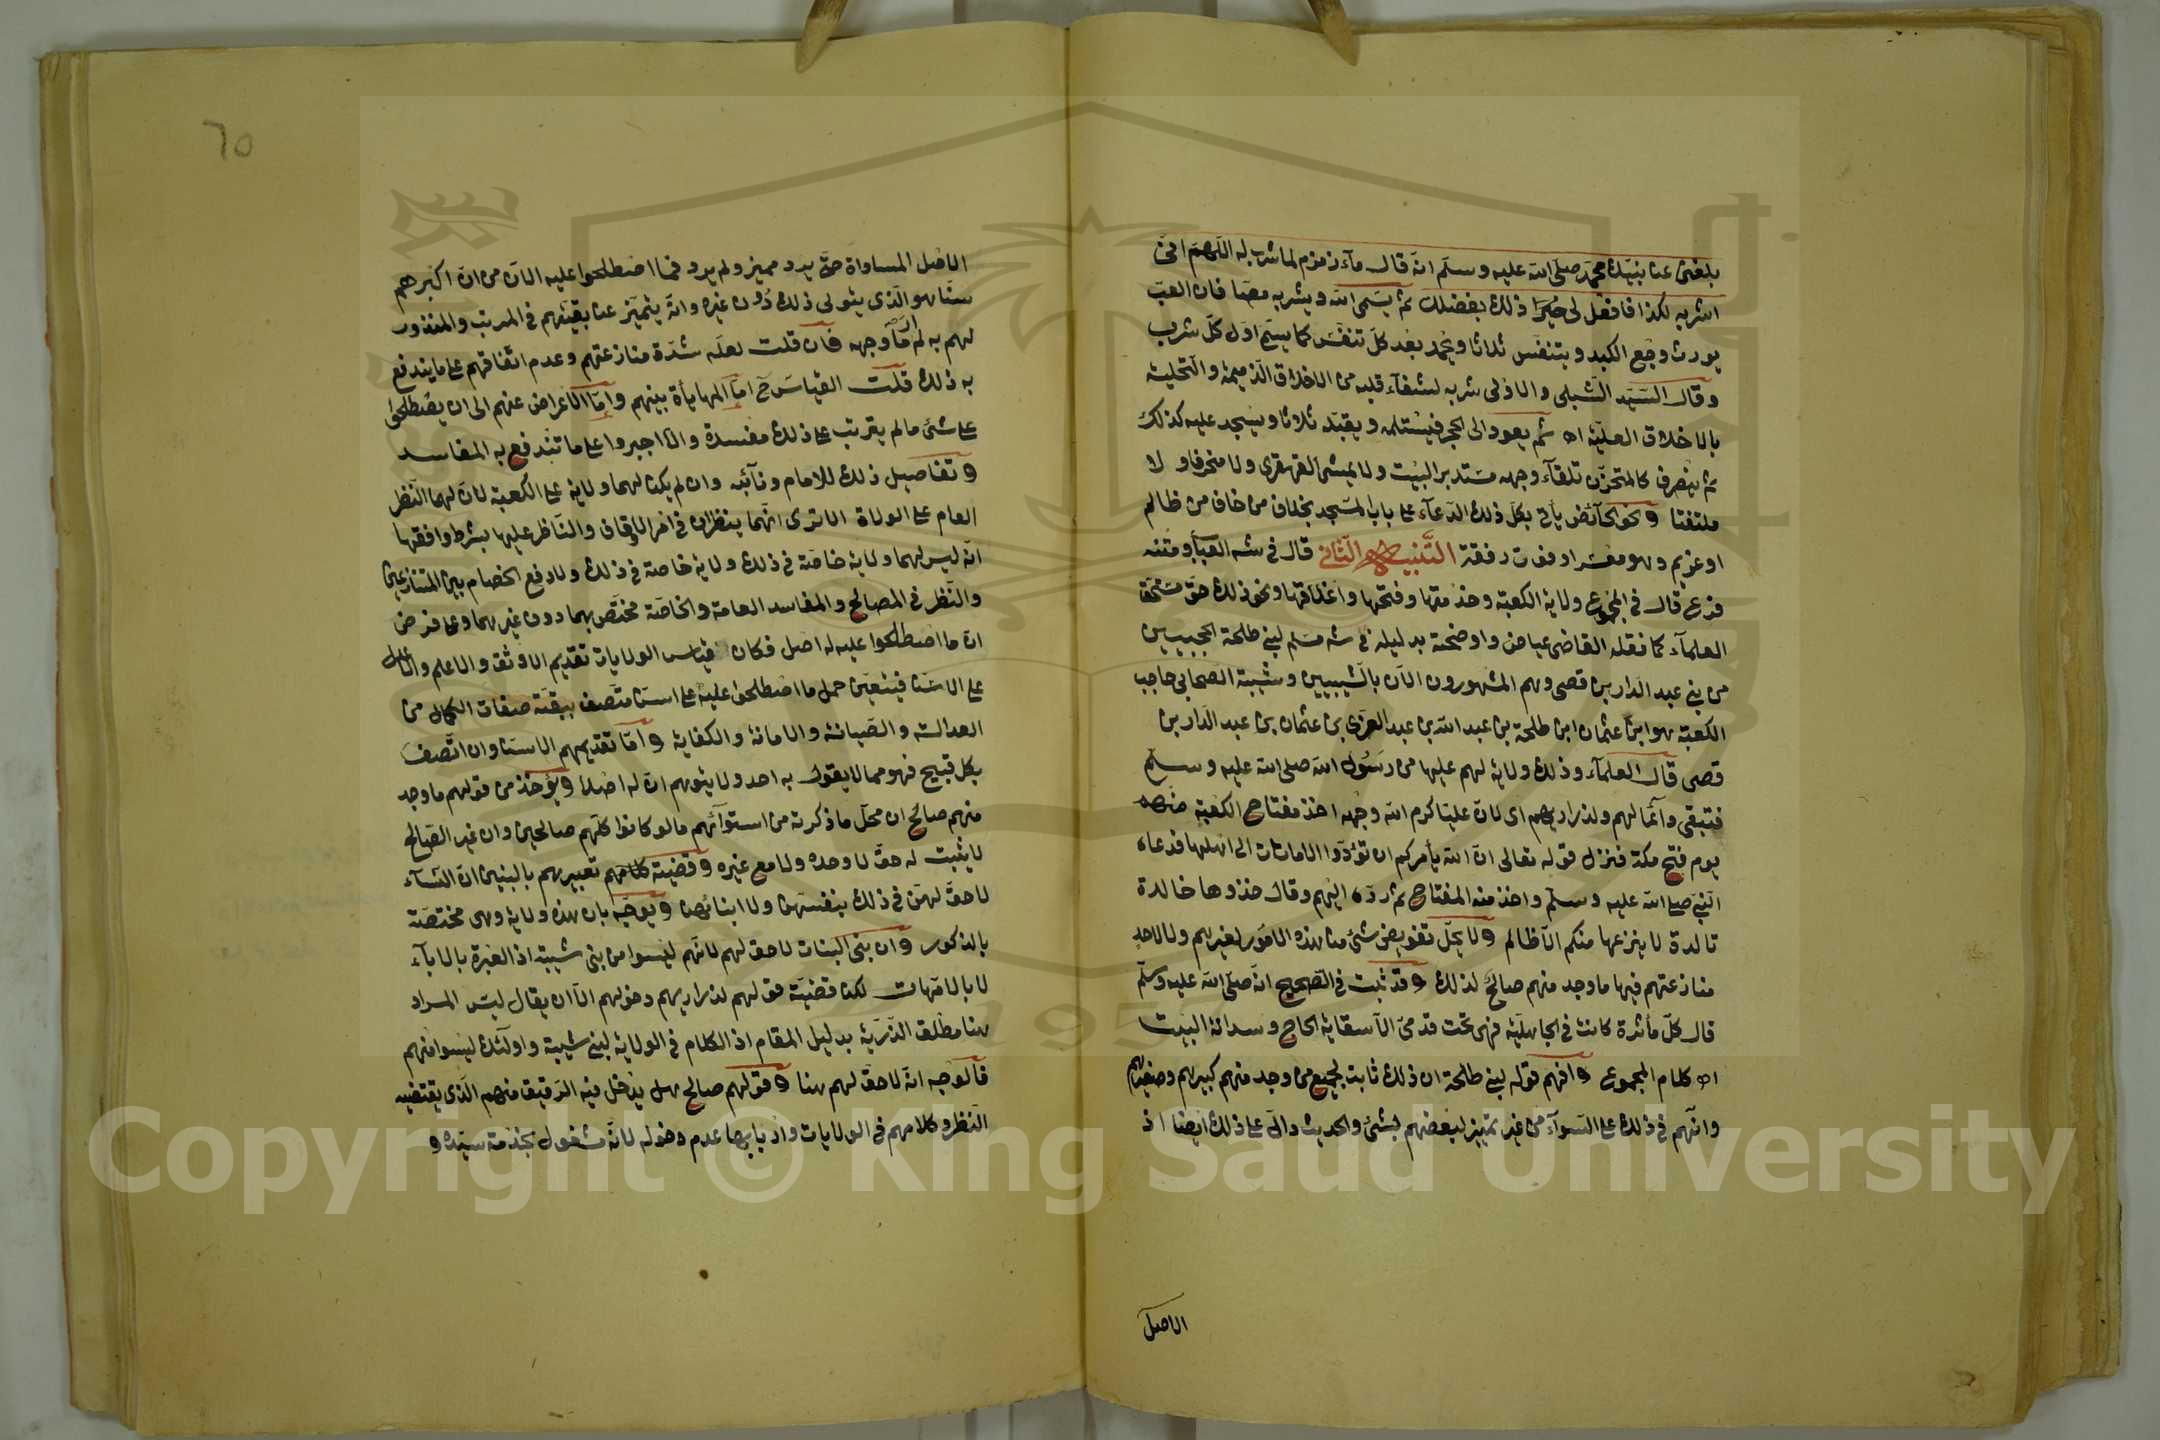 بلغنى عن نبيك محمد صلى الله عليه وسلم انه قال مآء زمزم لما شرب له اللهم انى
اشربه لكذا فافعل لى خيرا ذلك بفضلك ثم يسمى الله ويشربه مصا فان العب
يورث وجع الكبد ويتنفس ثلاثا ويحمد بعد كل تنفس كما يسمى اول كل شرب
وقال السيد الشبلى والاولى شربه لشفآء قلبه من الاخلاق الذميمة والتحلية
بالاخلاق العلية اه ثم يعود الى الحجر فيستلمه ويقبله ثلاثا ويسجد عليه كذلك
ثم ينصرف كالمتحزن تلقآء وجهه مستدبر البيت ولا يمشى القهقرى ولا منحرفا ولا
ملتفتا ونحو الحآئض يأتى بكل ذلك الدعآء على باب المسجد بخلاف من خاف من ظالم
او غريم وهو معسر او فوت رفقة التنبيه الثانى قال فى شه العباب ومتنه
فرع قال فى المجموع ولاية الكعبة وخدمتها وفتحها واغلاقها ونحو ذلك حق مستحق
العلمآء كما نقله القاضى عياض واوضحته بدليله فى شه مسلم لبنى طلحة الحجبيين
من بنى عبد الدار بن قصى وهم المشهورون الآن بالشيبيين وشيبة الصحابى حاجب
الكعبة هو ابن عثمان ابن طلحة بن عبد الله بن عبد العزى بن عثمان بن عبد الدار بن
قصى قال العلمآء وذلك ولاية لهم عليها من رسول الله صلى الله عليه وسلم
فتبقى دآئما لهم ولذراريهم اى لان عليا كرم الله وجهه اخذ مفتاح الكعبة منهم
يوم فتح مكة فنزل قوله تعالى ان الله يأمركم ان تؤدوا الامانات الى اهلها فدعاه
النبى صلى الله عليه وسلم واخذ منه المفتاح ثم رده اليهم وقال خذوها خالدة
تالدة لا ينزعها منكم الا ظالم ولا يحل تفويض شئ من هذه الامور لغيرهم ولا لاحد
منازعتهم فيها ما وجد منهم صالح لذلك وقد ثبت فى الصحيح انه صلى الله عليه وسلم
قال كل مأثرة كانت فى الجاهلية فهى تحت قدمى الا سقاية الحاج وسدانة البيت
اه كلام المجموع وافهم قوله لبنى طلحة ان ذلك ثابت لجميع من وجد منهم كبيرهم وصغيرهم
وانهم فى ذلك على السوآء من غير تمييز لبعضهم بشئ والحديث دال على ذلك ايضا اذ
الاصل
٦٥
الاصل المساواة حتى يرد مميز ولم يرد فما اصطلحوا عليه الآن من ان اكبرهم
سنا هو الذى يتولى ذلك دون غيره وانه يتميز عن بقيتهم فى المرتب والمنذور
لهم به لم ار له وجه فان قلت لعله شدة منازعتهم وعدم اتفاقهم على ما يندفع
به ذلك قلت القياس ح اما المهايأة بينهم واما الاعراض عنهم الى ان يصطلحوا
على شئ ما لم يترتب على ذلك مفسدة والا اجبروا على ما تندفع به المفاسد
وتفاصيل ذلك للامام ونآئبه وان لم يكن لهما ولاية على الكعبة لان لهما النظر
العام على الولاة الا ترى انهما ينظران فى امر الاوقاف والناظر عليها بشرط واقفها
انه ليس لهما ولاية خاصة فى ذلك ولاية خاصة فى ذلك ولا دفع الخصام بين المتنازعين
والنظر فى المصالح والمفاسد العامة والخاصة مختص بهما دون غيرهما وعلى فرض
ان ما اصطلحوا عليه له اصل فكان قياس الولايات تقديم الاوثق والاعلم والاعدل
على الاسن فيتعين حمل ما اصطلحوا عليه على اسن متصف ببقية صفات الكمال من
العدالة والصيانة والامانة والكفاية واما تقديمهم الاسن وان اتصف
بكل قبيح فهو مما لا يقول به احد ولا يتوهم ان له اصلا ويؤخذ من قولهم ما وجد
منهم صالح ان محل ما ذكرته من استوآئهم ما لو كانوا كلهم صالحين وان غير الصالح
لا يثبت له حق لا وحده ولا مع غيره وقضية كلامهم تعبيرهم بالبنين ان النسآء
لا حق لهن فى ذلك بنفسهن ولا ابنائهن ويوجه بان هذه ولاية وهى مختصة
بالذكور وان بنى البنات لا حق لهم لانهم ليسوا من بنى شيبة اذ العبرة بالابآء
لا بالامهات لكن قضية قولهم لذراريهم دخولهم الا ان يقال ليس المراد
هنا مطلق الذرية بدليل المقام اذ الكلام فى الولاية لبنى شيبة واولئك ليسوا منهم
فالوجه انه لا حق لهم هنا وقولهم صالح هل يدخل فيه الرقيق منهم الذى يقتضيه
النظر وكلامهم فى الولايات واربابها عدم دخوله لانه مشغول بخدمة سيده و
Copyright © King Saud University